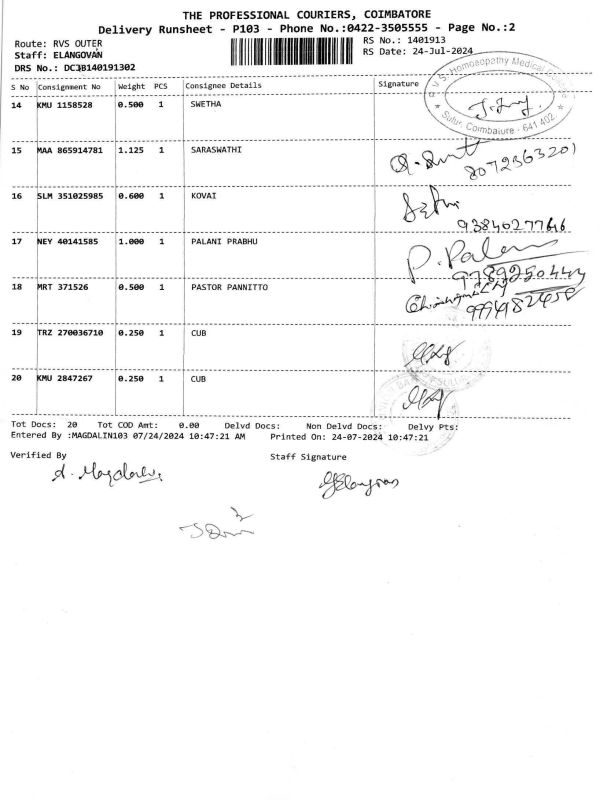 THE PROFESSIONAL COURIERS, COIMBATORE
Delivery Runsheet - P103 - Phone No.:0422-3505555 - Page No.:2
Route: RVS OUTER
RS No.: 1401913
Staff: ELANGOVAN
RS Date: 24-Jul-2024
DRS No.: DCJB140191302
S No Consignment No Weight PCS Consignee Details Signature
R V S. Homoeopathy Medical College
Sulur, Coimbatore - 641 402.
14 KMU 1158528 0.500 1 SWETHA
15 MAA 865914781 1.125 1 SARASWATHI
8072363201
16 SLM 351025985 0.600 1 KOVAI
93840277646
17 NEY 40141585 1.000 1 PALANI PRABHU
P. Palani
18 MRT 371526 0.500 1 PASTOR PANNITTO
19 TRZ 270036710 0.250 1 CUB
20 KMU 2847267 0.250 1 CUB
Tot Docs: 20 Tot COD Amt: 0.00 Delvd Docs: Non Delvd Docs: Delvy Pts:
Entered By :MAGDALIN103 07/24/2024 10:47:21 AM Printed On: 24-07-2024 10:47:21
Verified By Staff Signature